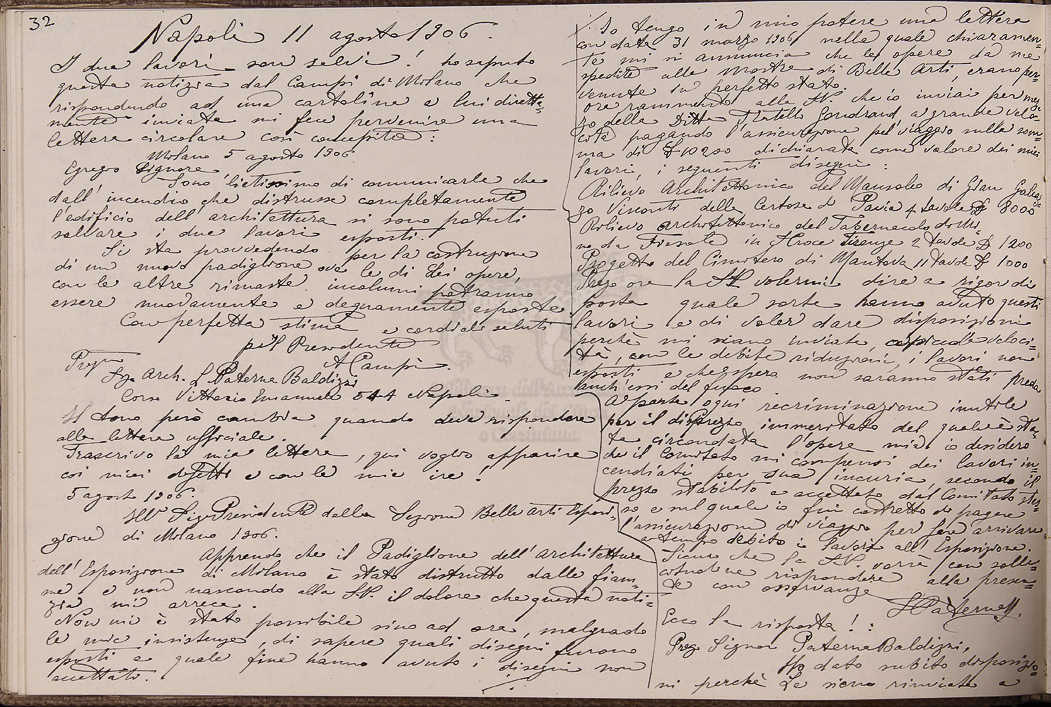 32
Napoli 11 agosto 1906.
I due lavori son salvi! ho saputo
questa notizia dal Campi di Milano che
rispondendo ad una cartolina a lui diretta-
mente inviata mi fece pervenire una
lettera circolare così concepita:
Milano 5 agosto 1906.
Egregio Signore
Sono lietissimo di comunicarle che
dall'incendio che distrusse completamente
l'edificio dell'architettura si sono potuti
salvare i due lavori esposti.
Si sta provvedendo per la costruzione
di un nuovo padiglione ove le di Lei opere,
con le altre rimaste incolumi potranno
essere nuovamente e degnamente esposte
Con perfetta stima e cordiali saluti
pel Presidente
A Campi
Preg
Sig. Arch. L Paterna Baldizzi
Corso Vittorio Emanuele 544 Napoli
Il tono però cambia quando deve rispondere
alla lettera ufficiale.
Trascrivo la mia lettera, qui voglio apparire
coi miei difetti e con le mie ire!
5 agosto 1906.
Ill. Sig. Presidente della Sezione Belle Arti Esposi-
zione di Milano 1906.
Apprendo che il Padiglione dell'Architettura
dell'Esposizione di Milano è stato distrutto dalle fiam
me e non nascondo alla S.V. il dolore che questa noti-
zia mi arreca.
Non mi è stato possibile sino ad ora, malgrado
le mie insistenze, di sapere quali disegni furono
esposti e quale fine hanno avuto i disegni non
accettati.
Io tengo in mio potere una lettera
con data 31 marzo 1906, nella quale chiaramen-
te mi si annuncia che le opere da me
spedite alla Mostra di Belle Arti, erano per
venute in perfetto stato.
ora rammento alla S.V. che io inviai per mez
zo della Ditta Fratelli Gondrand, a grande velo-
cità pagando l'assicurazione pel viaggio sulla som-
ma di £ 10200 dichiarata come valore dei miei
lavori, i seguenti disegni:
Rilievo Architettonico del Mausoleo di Gian Galeaz-
zo Visconti della Certosa di Pavia 4 tavole £ 8000
Rilievo architettonico del Tabernacolo di Mi-
no da Fiesole in S. Croce Firenze 2 Tavole £ 1200
Progetto del Cimitero di Mantova 11 Tavole £ 1000
Prego ora la S.V. volermi dire a rigor di
posta quale sorte hanno avuto questi
lavori e di voler dare disposizioni
perchè mi siano inviate, a piccola veloci-
tà, con le debite riduzioni, i lavori non
esposti e che spero non saranno stati preda
anch'essi del fuoco
A parte ogni recriminazione inutile
per il disprezzo immeritato del quale è sta-
ta circondata l'opera mia io desidero
che il Comitato mi compensi dei lavori in-
cendiati per sua incuria, secondo il
prezzo stabilito e accettato dal Comitato stes-
so e sul quale io fui costretto a pagare
l'assicurazione di viaggio per fare arrivare
a tempo debito i lavori all'Esposizione.
Sicuro che la S.V. vorrà con solle
citudine rispondere alla presen-
te con osservanza
L Paterna B.
Ecco la risposta!:
Preg. Signor Paterna Baldizzi,
Ho dato subito disposizio-
ni perchè Le siano rinviate a